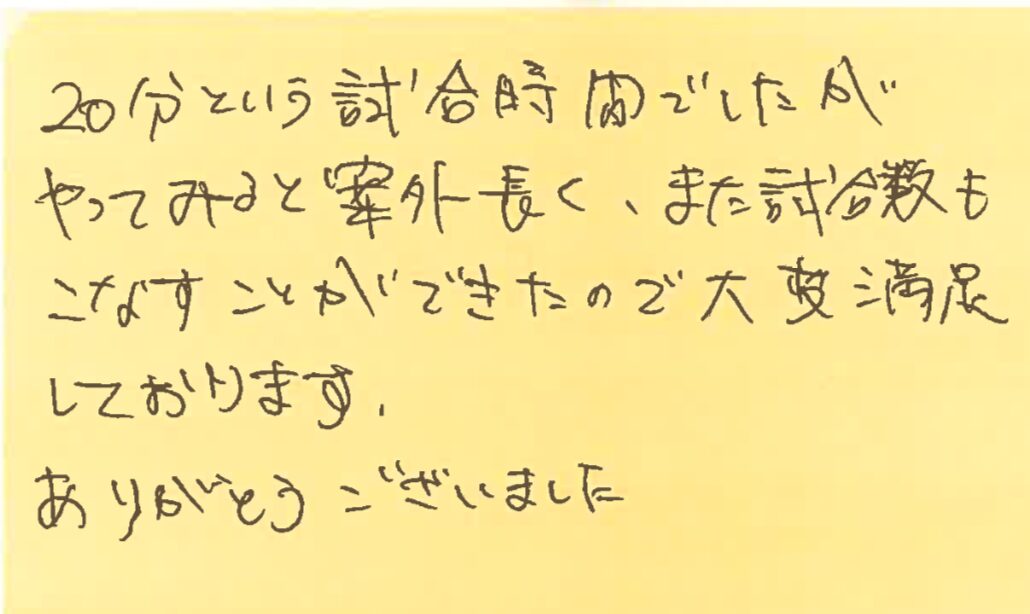 20分という試合時間でしたが
やってみると案外長く、また試合数も
こなすことができたので大変満足
しております.
ありがとうございました